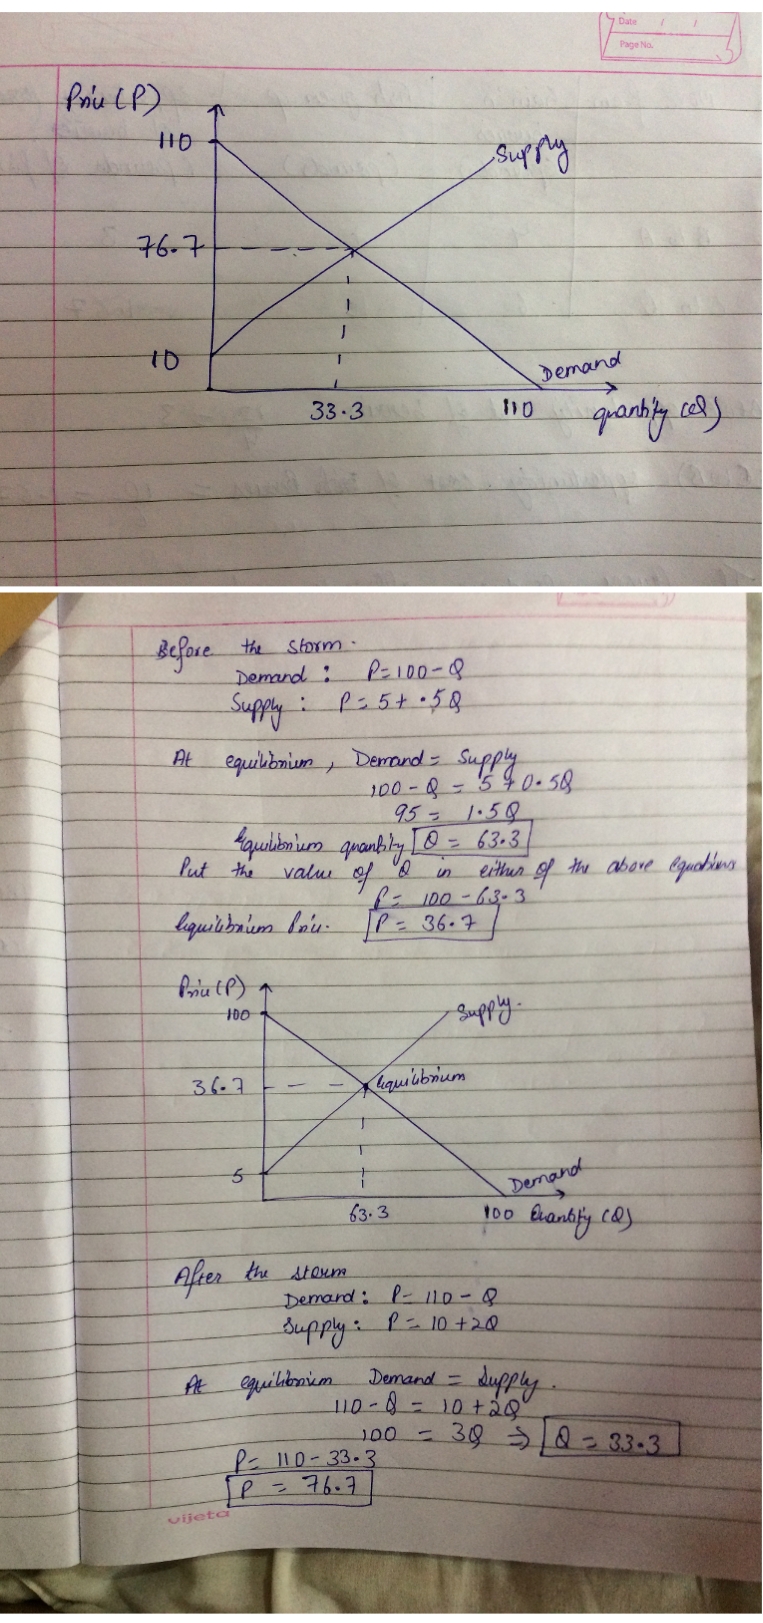 Date / /
Page No.
Price (P)
110
Supply
76.7
10
Demand
33.3
110
quantity (Q)
Before the storm.
Demand : P=100-Q
Supply : P= 5+ .5Q
At equilibrium, Demand = Supply
100 - Q = 5+0.5Q
95 = 1.5Q
Equilibrium quantity Q = 63.3
Put the value of Q in either of the above equations
P= 100-63.3
Equilibrium Price. P= 36.7
Price (P)
100
Supply.
36.7
Equilibrium
5
Demand
63.3
100
Quantity (Q)
After the storm
Demand: P= 110 - Q
Supply: P= 10+2Q
At equilibrium Demand = Supply.
110-Q = 10+2Q
100 = 3Q ⇒ Q = 33.3
P= 110-33.3
P = 76.7
vijeta